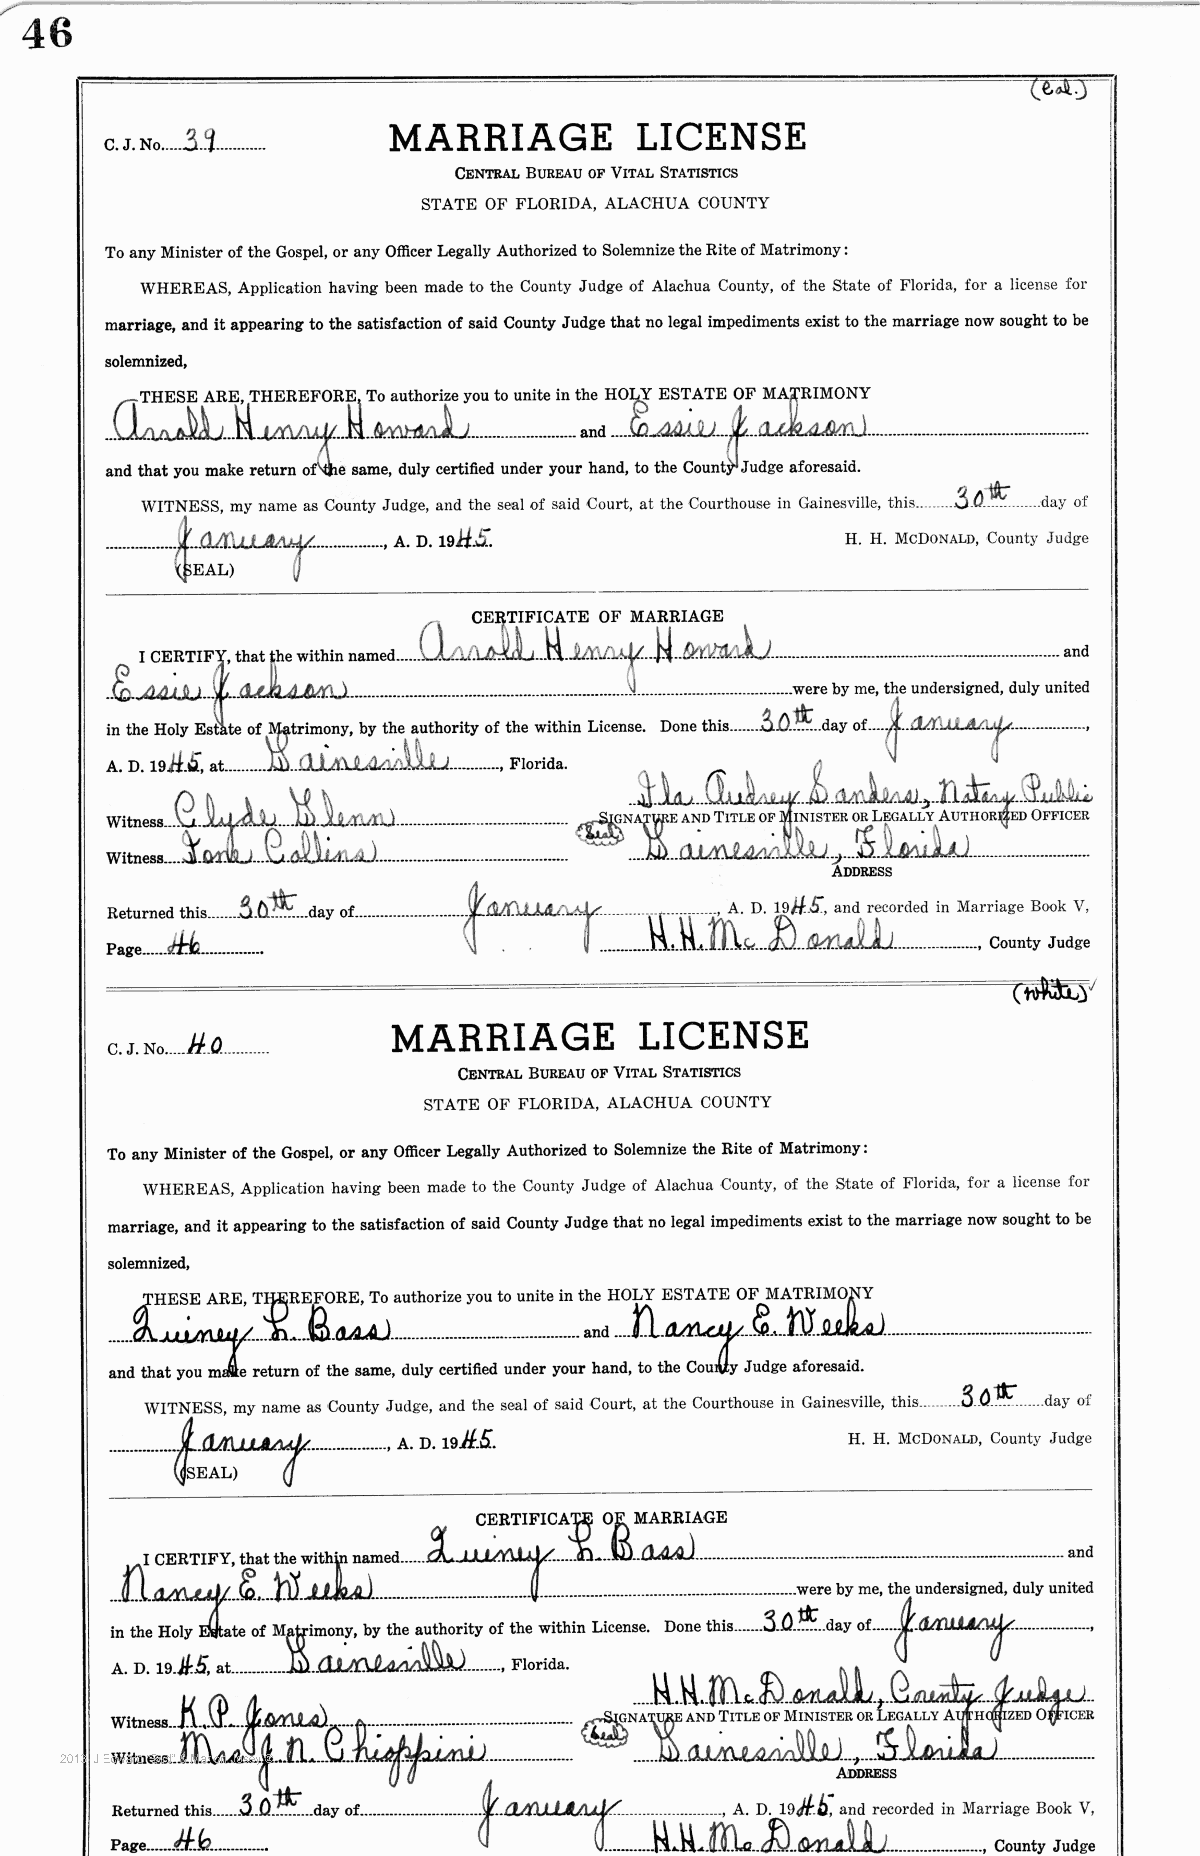 46
(Col.)
C. J. No. 39
MARRIAGE LICENSE
CENTRAL BUREAU OF VITAL STATISTICS
STATE OF FLORIDA, ALACHUA COUNTY
To any Minister of the Gospel, or any Officer Legally Authorized to Solemnize the Rite of Matrimony:
WHEREAS, Application having been made to the County Judge of Alachua County, of the State of Florida, for a license for
marriage, and it appearing to the satisfaction of said County Judge that no legal impediments exist to the marriage now sought to be
solemnized,
THESE ARE, THEREFORE, To authorize you to unite in the HOLY ESTATE OF MATRIMONY
Arnold Henry Howard and Essie Jackson
and that you make return of the same, duly certified under your hand, to the County Judge aforesaid.
WITNESS, my name as County Judge, and the seal of said Court, at the Courthouse in Gainesville, this 30th day of
January, A. D. 1945. H. H. MCDONALD, County Judge
(SEAL)
CERTIFICATE OF MARRIAGE
I CERTIFY, that the within named Arnold Henry Howard and
Essie Jackson were by me, the undersigned, duly united
in the Holy Estate of Matrimony, by the authority of the within License. Done this 30th day of January,
A. D. 1945, at Gainesville, Florida.
Ila Audrey Sanders, Notary Public
Witness Clyde Glenn SIGNATURE AND TITLE OF MINISTER OR LEGALLY AUTHORIZED OFFICER
Seal
Witness Collins Gainesville, Florida
ADDRESS
Returned this 30th day of January, A. D. 1945, and recorded in Marriage Book V,
Page 46. H. H. McDonald, County Judge
(white)
C. J. No. 40
MARRIAGE LICENSE
CENTRAL BUREAU OF VITAL STATISTICS
STATE OF FLORIDA, ALACHUA COUNTY
To any Minister of the Gospel, or any Officer Legally Authorized to Solemnize the Rite of Matrimony:
WHEREAS, Application having been made to the County Judge of Alachua County, of the State of Florida, for a license for
marriage, and it appearing to the satisfaction of said County Judge that no legal impediments exist to the marriage now sought to be
solemnized,
THESE ARE, THEREFORE, To authorize you to unite in the HOLY ESTATE OF MATRIMONY
Quincy L. Bass and Nancy E. Weeks
and that you make return of the same, duly certified under your hand, to the County Judge aforesaid.
WITNESS, my name as County Judge, and the seal of said Court, at the Courthouse in Gainesville, this 30th day of
January, A. D. 1945. H. H. MCDONALD, County Judge
(SEAL)
CERTIFICATE OF MARRIAGE
I CERTIFY, that the within named Quincy L. Bass and
Nancy E. Weeks were by me, the undersigned, duly united
in the Holy Estate of Matrimony, by the authority of the within License. Done this 30th day of January,
A. D. 1945, at Gainesville, Florida.
H. H. McDonald, County Judge
Witness K. P. Jones SIGNATURE AND TITLE OF MINISTER OR LEGALLY AUTHORIZED OFFICER
Seal
Witness J. N. Chioppini Gainesville, Florida
ADDRESS
Returned this 30th day of January, A. D. 1945, and recorded in Marriage Book V,
Page 46. H. H. McDonald, County Judge